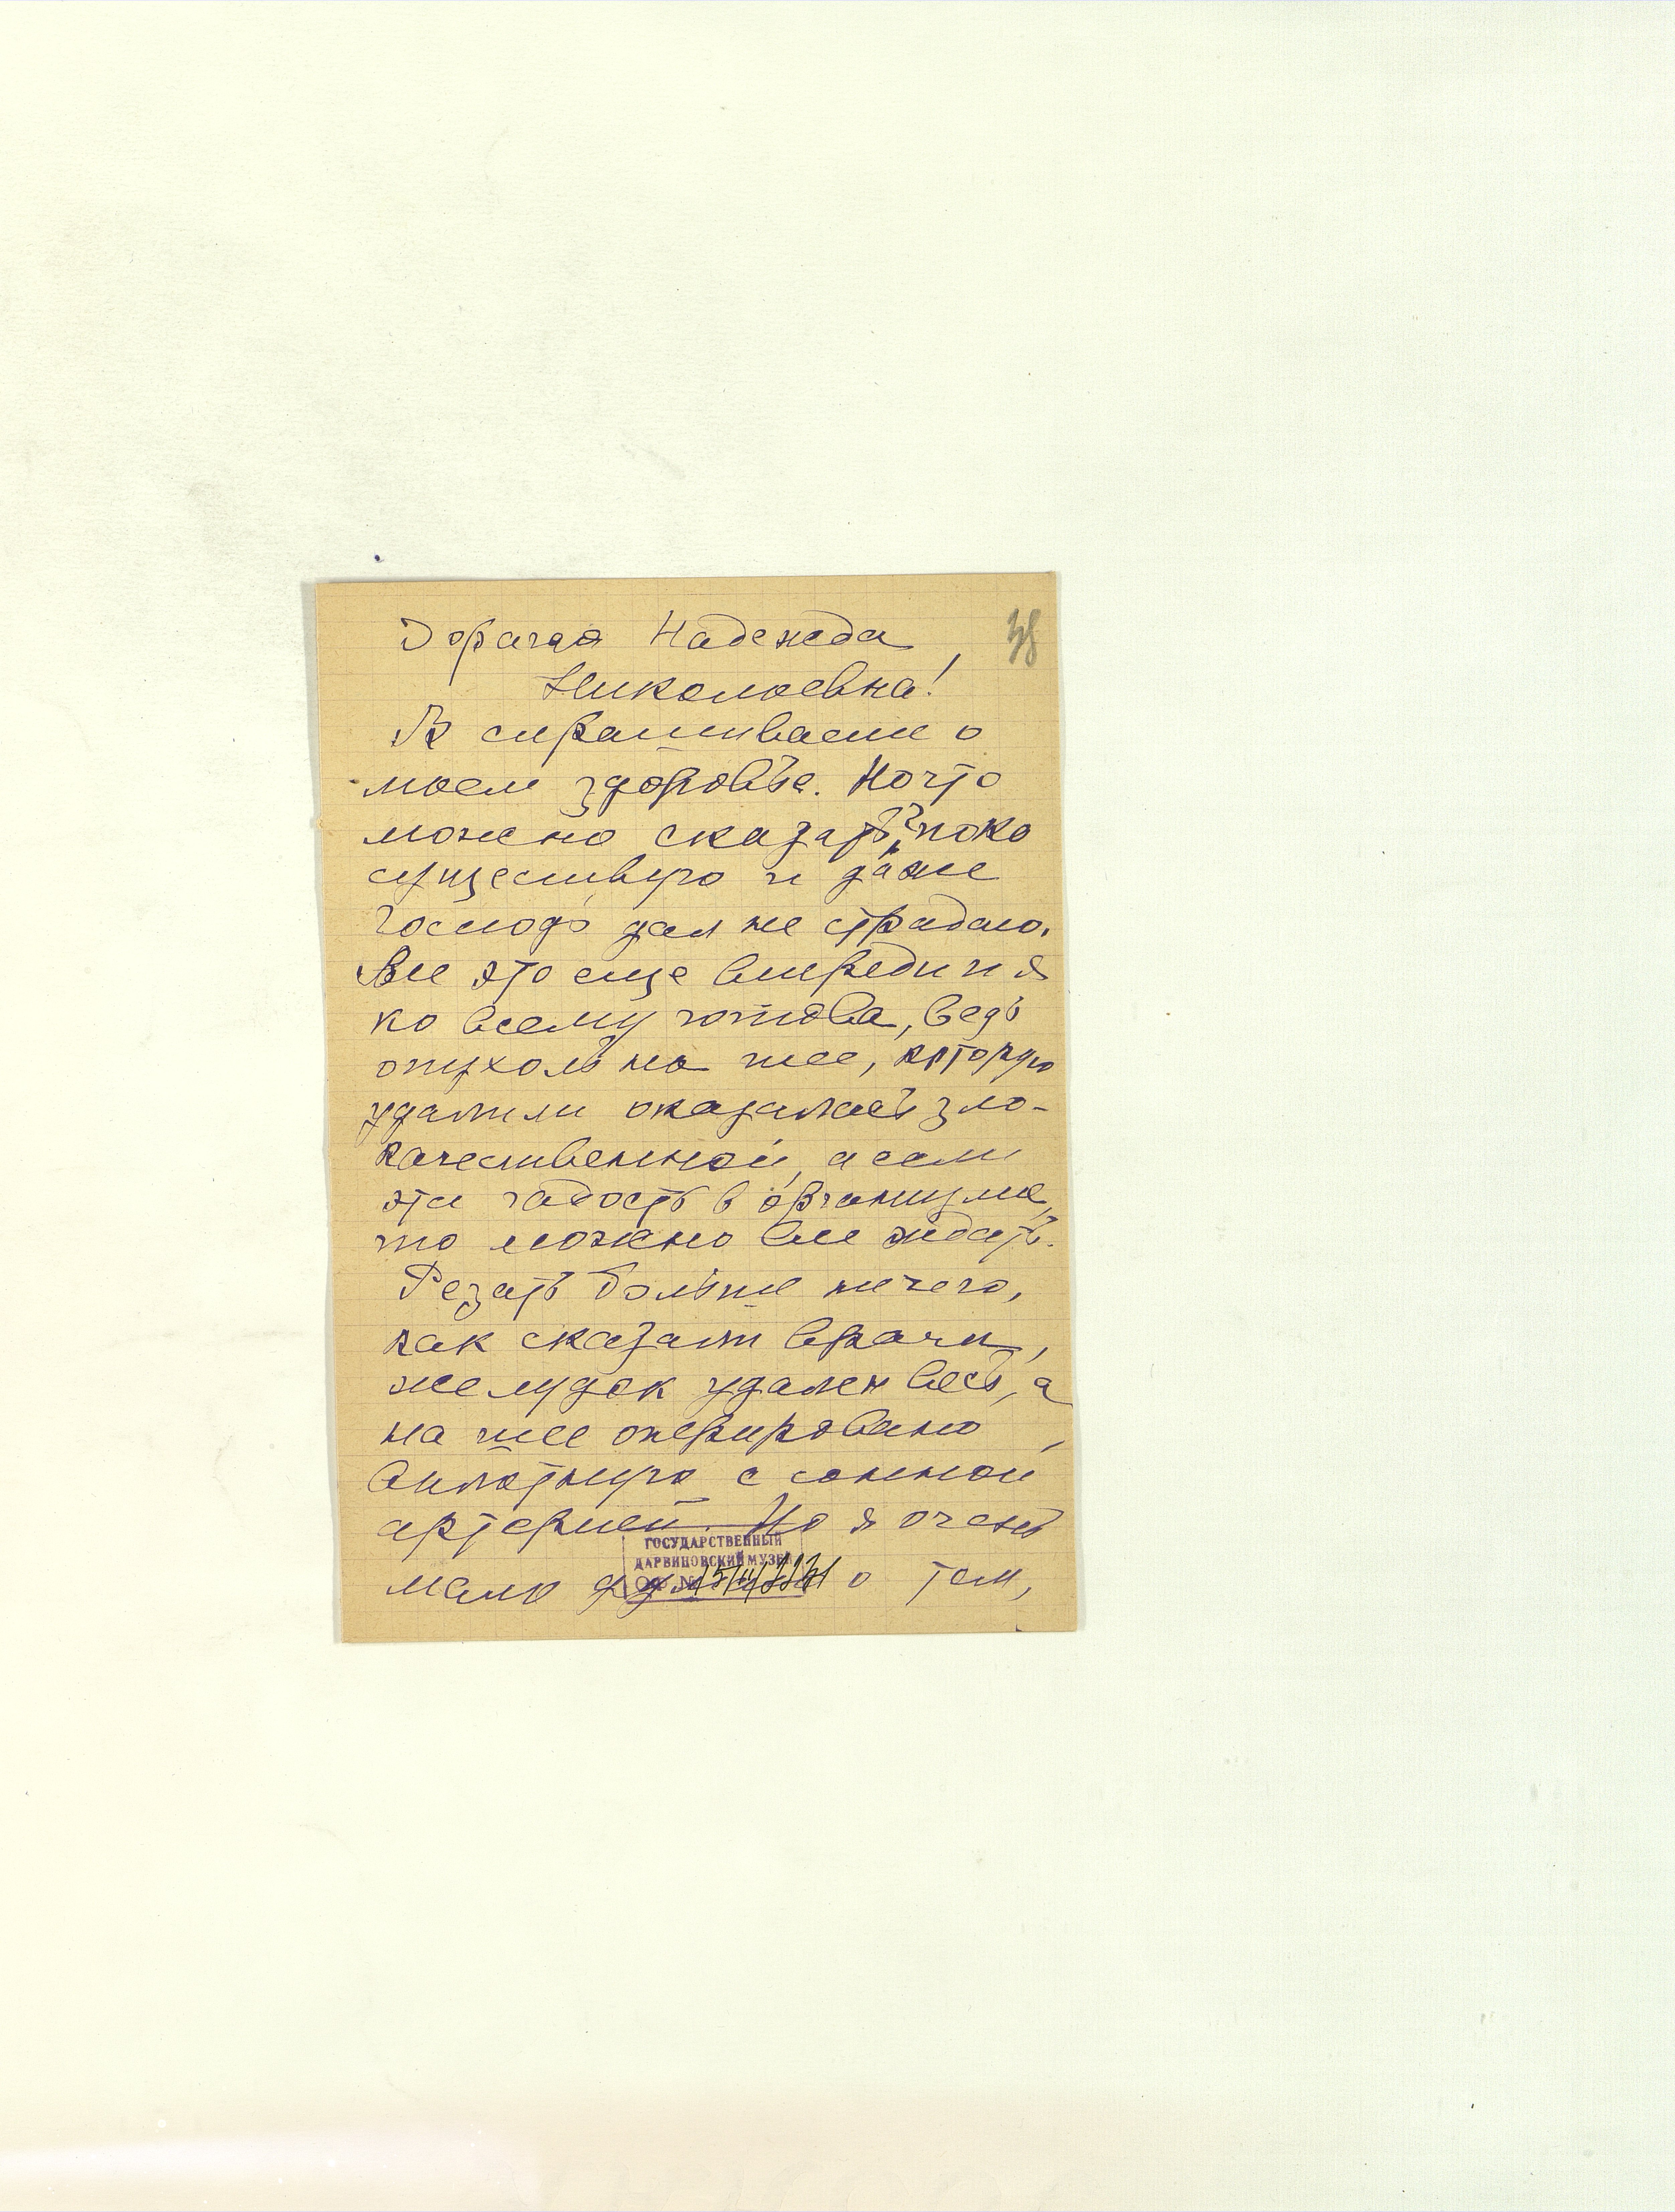 Дорагая Надежда
38
Николаевна!
В спрашиваете о
моем здоровье. Но что
можно сказать? пока
существую и даже
Господь дал не страдаю.
Все это еще впереди и я
ко всему готова, ведь
опухоль на шее, которую
удалили оказалась зло-
качественной, а если
эта гадость в организме,
то можно все ждать.
Резать больше нечего,
как сказали врачи,
желудок удален весь, а
на шее оперировано
вплотную с сонной
артерией. Но я очень
ГОСУДАРСТВЕННЫЙ
ДАРВИНОВСКИЙ МУЗЕЙ
ОФ №
мало о том,